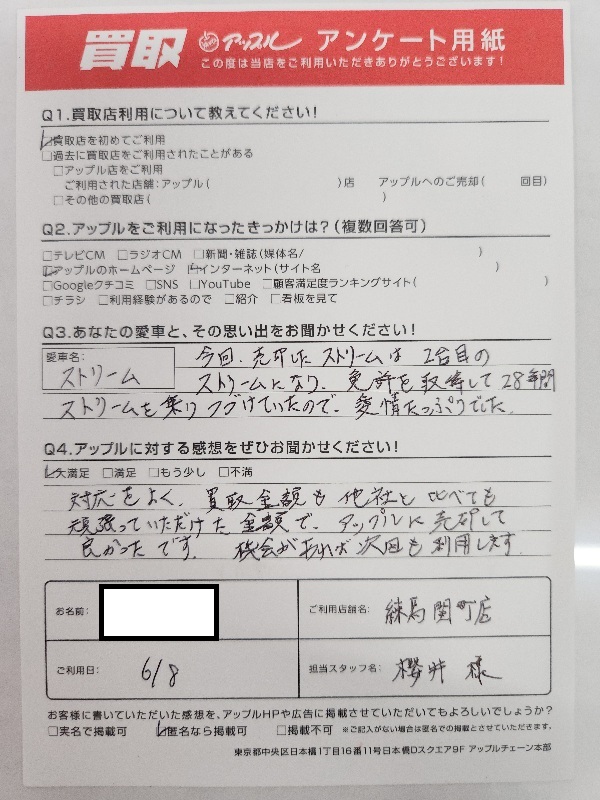 買取 アップル アンケート用紙
この度は当店をご利用いただきありがとうございます!
Q1.買取店利用について教えてください!
□買取店を初めてご利用
□過去に買取店をご利用されたことがある
□アップル店をご利用
ご利用された店舗:アップル( )店 アップルへのご売却( 回目)
□その他の買取店( )
Q2.アップルをご利用になったきっかけは?(複数回答可)
□テレビCM □ラジオCM □新聞・雑誌(媒体名/ )
□アップルのホームページ □インターネット(サイト名 )
□Googleクチコミ □SNS □YouTube □顧客満足度ランキングサイト( )
□チラシ □利用経験があるので □紹介 □看板を見て
Q3.あなたの愛車と、その思い出をお聞かせください!
愛車名:
ストリーム
今回、売却したストリームは 2台目の
ストリームになり、免許を取得して28年間
ストリームを乗りつづけていたので、愛情たっぷりでした。
Q4.アップルに対する感想をぜひお聞かせください!
□大満足 □満足 □もう少し □不満
対応もよく、買取金額も他社と比べても
頑張っていただけた金額で、アップルに売却して
良かったです。機会があれば次回も利用します。
お名前: ご利用店舗名: 練馬関町店
ご利用日: 6/8 担当スタッフ名: 櫻井 様
お客様に書いていただいた感想を、アップルHPや広告に掲載させていただいてもよろしいでしょうか?
□実名で掲載可 □匿名なら掲載可 □掲載不可 ※ご記入がない場合は匿名での掲載とさせていただきます。
東京都中央区日本橋1丁目16番11号日本橋Dスクエア9F アップルチェーン本部